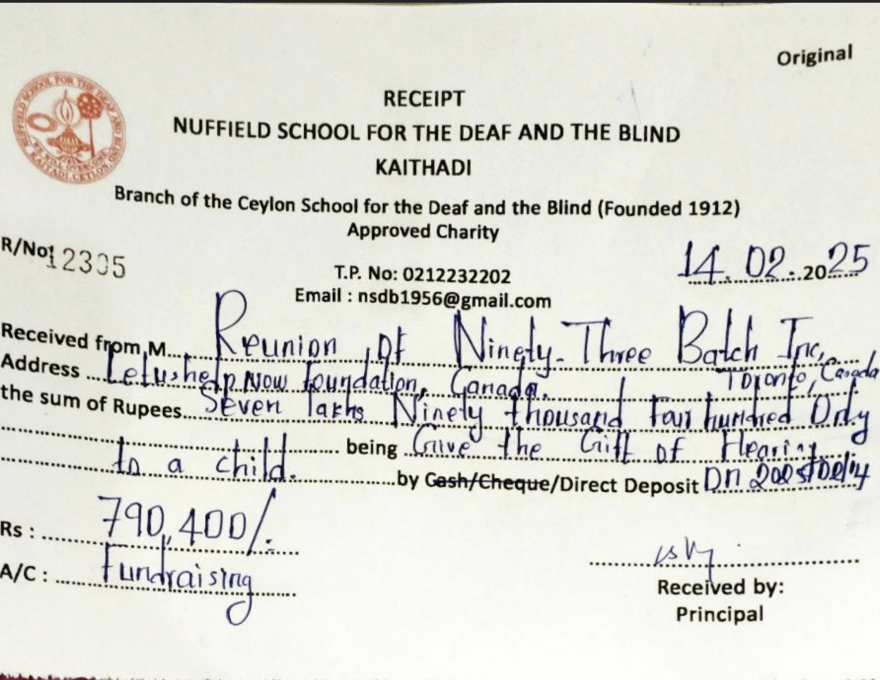 Original
RECEIPT
NUFFIELD SCHOOL FOR THE DEAF AND THE BLIND
KAITHADI
Branch of the Ceylon School for the Deaf and the Blind (Founded 1912)
Approved Charity
R/No: 12335
14.02.2025
T.P. No: 0212232202
Email : nsdb1956@gmail.com
Received from M... Reunion of Ninety-Three Batch Inc, Toronto, Canada
Address Letushelp Now foundation, Canada.
the sum of Rupees... Seven lakhs Ninety thousand Four hundred Only
being Give the Gift of Hearing
to a child. by Cash/Cheque/Direct Deposit On
Rs : 790,400/.
A/C : Fundraising
Received by:
Principal